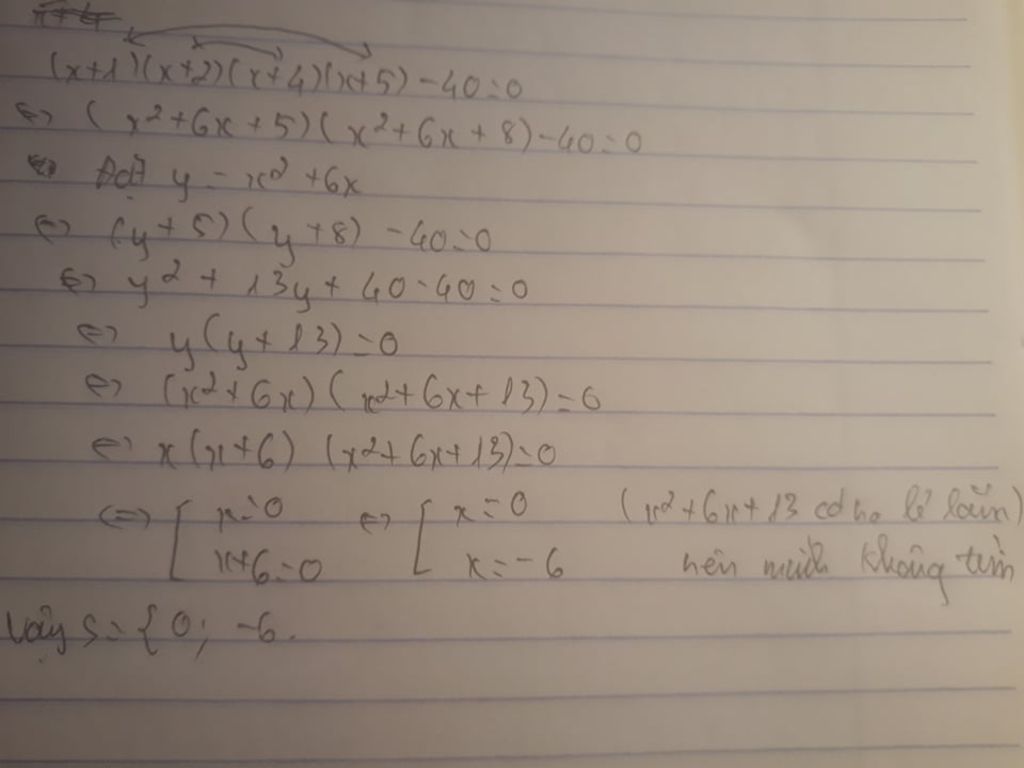 (x+1)(x+2)(x+4)(x+5) - 40 = 0
<=> (x²+6x+5)(x²+6x+8) - 40 = 0
Đặt y = x² + 6x
<=> (y+5)(y+8) - 40 = 0
<=> y² + 13y + 40 - 40 = 0
<=> y(y+13) = 0
<=> (x²+6x)(x²+6x+13) = 0
<=> x(x+6)(x²+6x+13) = 0
<=> [ x = 0 <=> [ x = 0 (x²+6x+13 có no lẻ lắm)
x+6 = 0 x = -6 nên mình không tìm
Vậy S = { 0; -6.